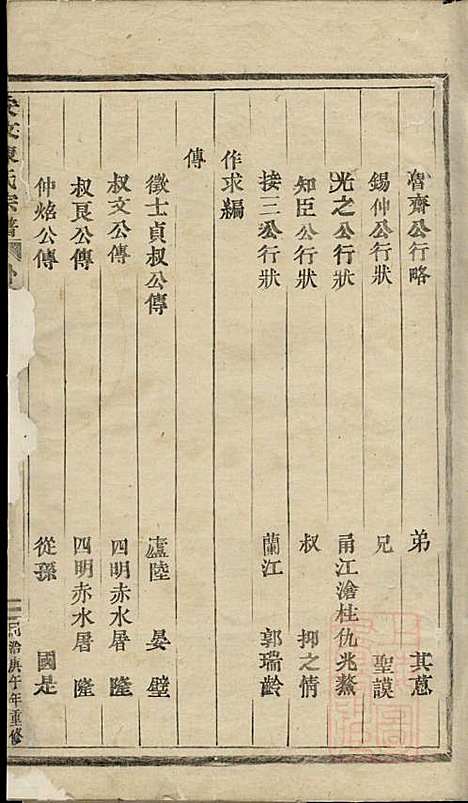 魯齋公行略 弟 其蒽
錫仲公行狀 兄 聖謨
光之公行狀 甬江滄柱仇兆鰲
知臣公行狀 叔 抑之倩
接三公行狀 蘭江 郭瑞齡
作求編
傳
徵士貞叔公傳 廬陵 晏璧
叔文公傳 四明赤水屠隆
叔良公傳 四明赤水屠隆
仲熖公傳 從孫 國是
氏宗譜
治庚午年重修